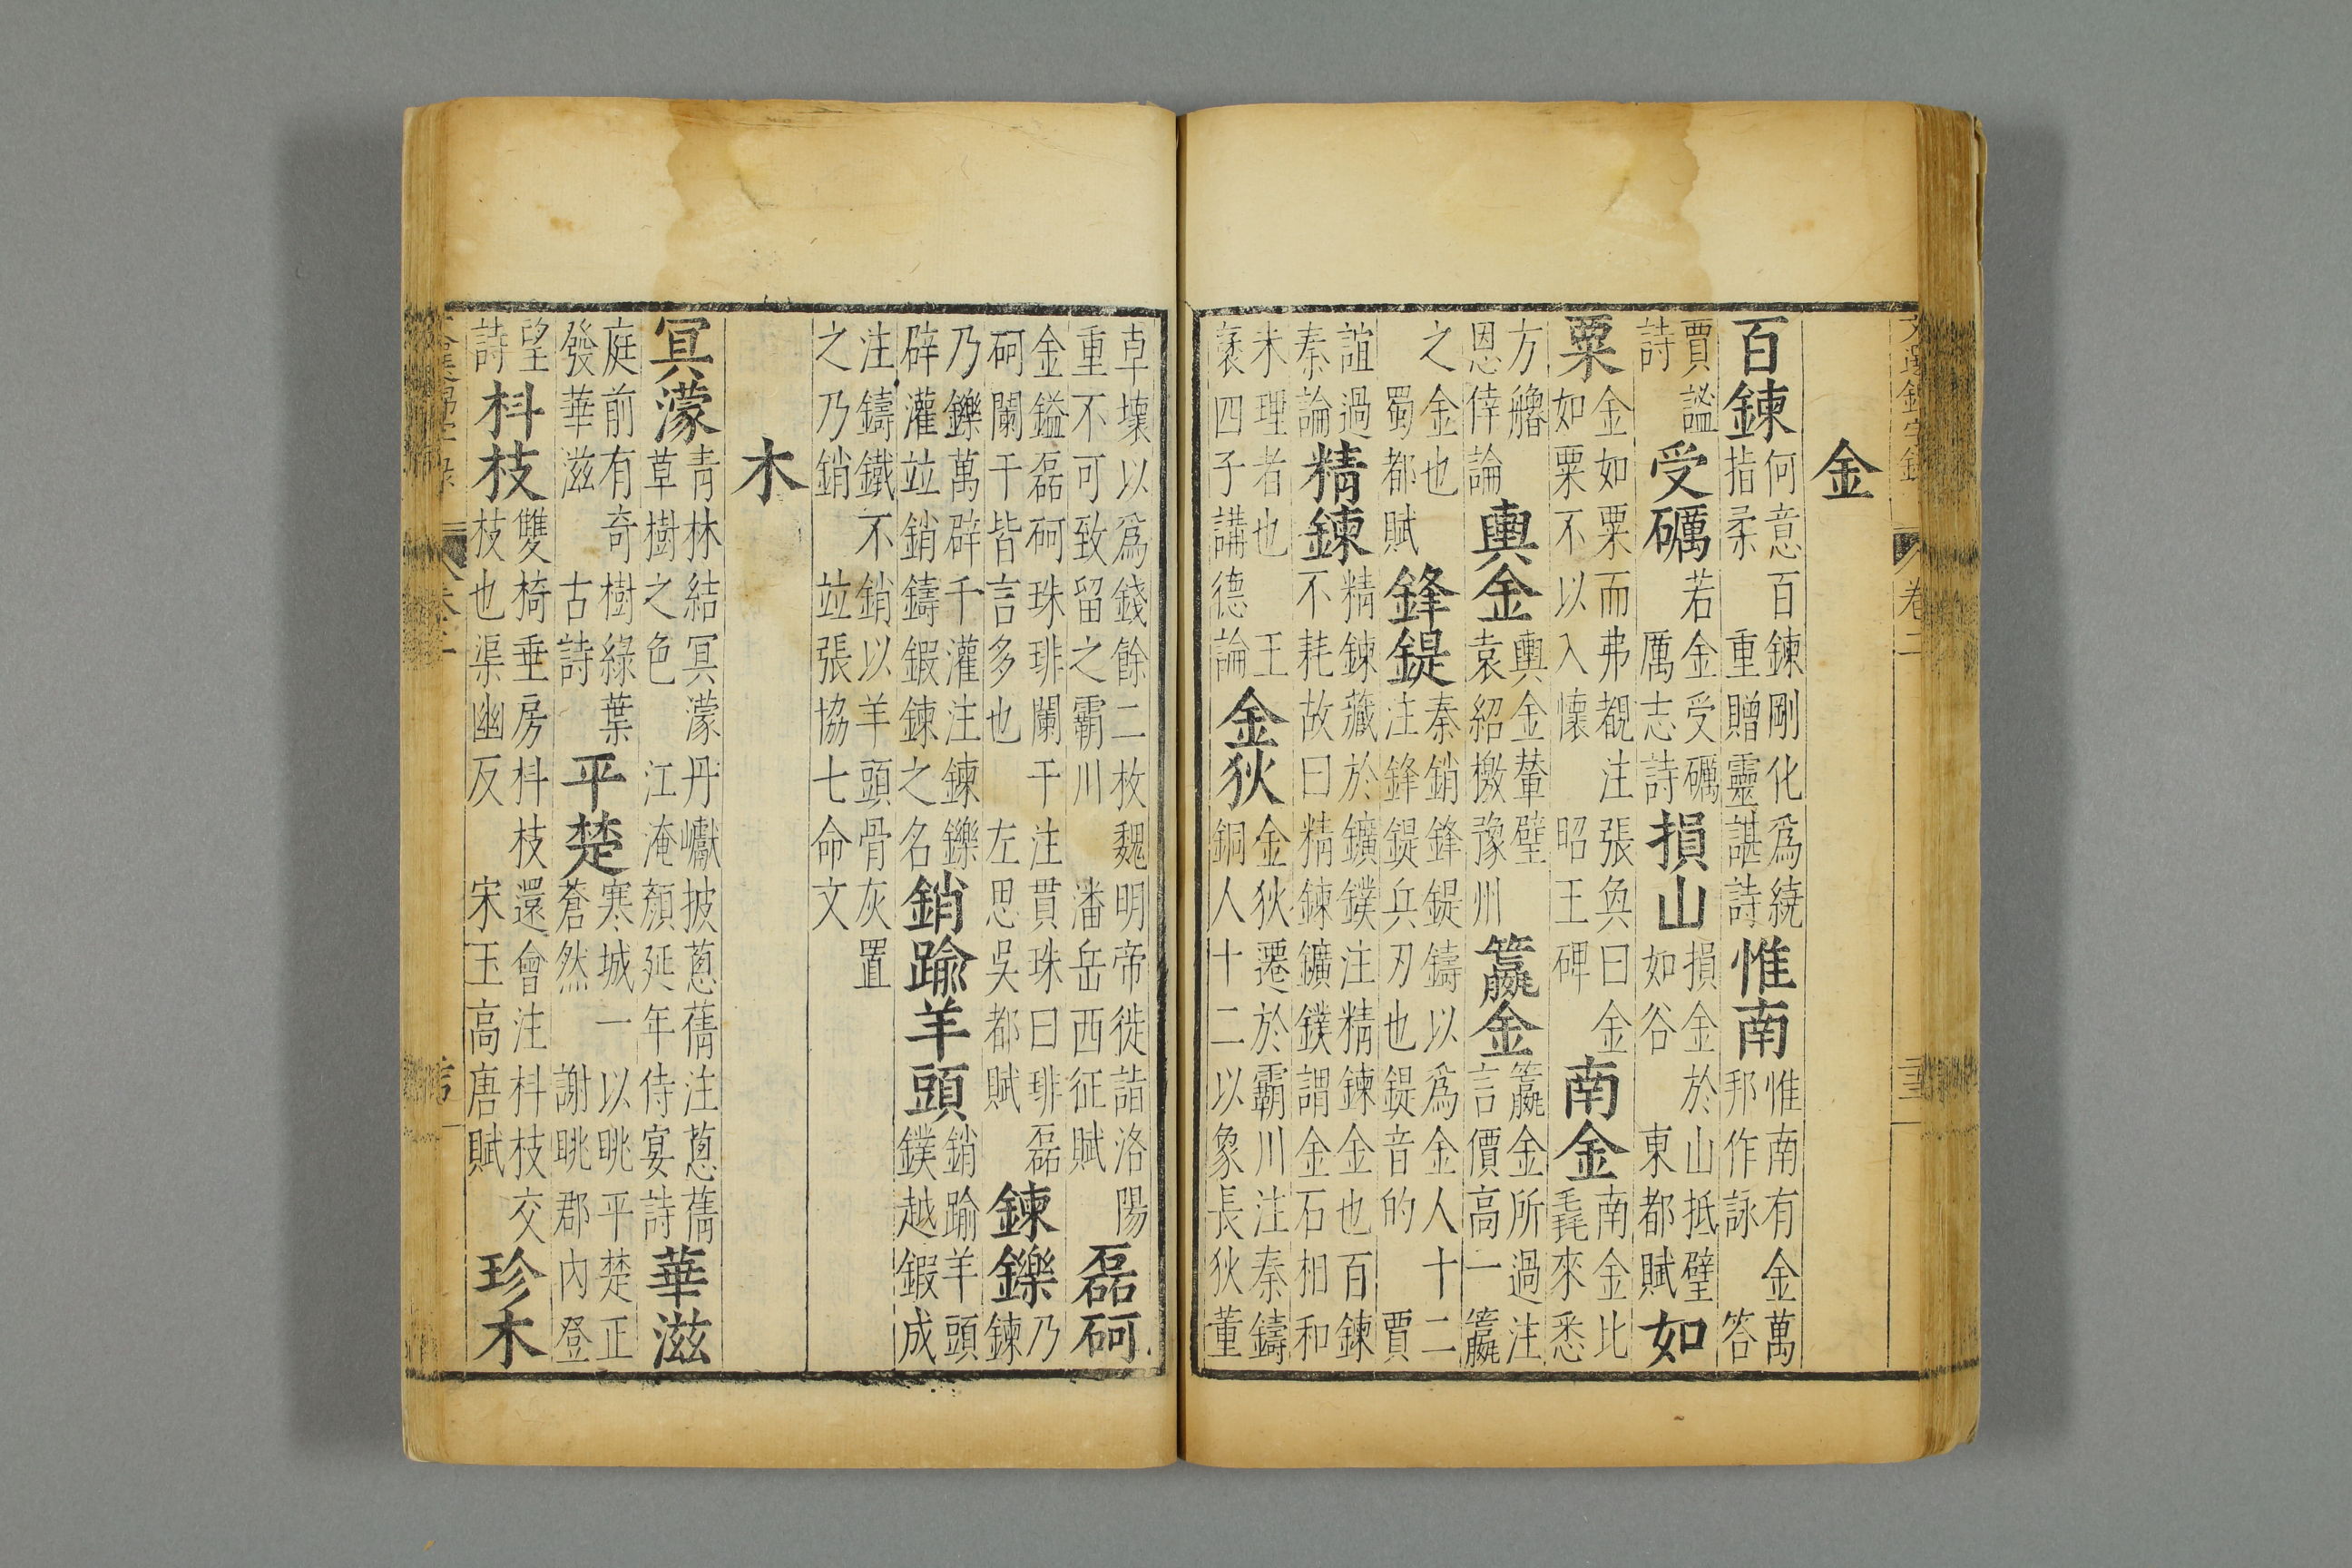 文選錦字錄 卷二
金
百鍊何意百鍊剛化爲繞指柔 重贈靈諶詩惟南惟南有金萬邦作詠 答
賈謐詩受礪若金受礪 厲志詩損山損金於山抵璧如谷 東都賦如
粟金如粟而弗覩注張奐曰金如粟不以入懷 昭王碑南金南金比毳來悉
方艪恩倖論輿金輿金輦璧 袁紹檄豫州籝金籝金所過注言價高一籝
之金也 蜀都賦鋒鍉秦銷鋒鍉鑄以爲金人十二注鋒鍉兵刃也鍉音的 賈
誼過秦論精鍊精鍊藏於鑛鏷注精鍊金也百鍊不耗故曰精鍊鑛鏷謂金石相和
未理者也 王褒四子講德論金狄金狄遷於霸川注秦鑄銅人十二以象長狄董
卓壞以爲錢餘二枚魏明帝徙詣洛陽重不可致留之霸川 潘岳西征賦磊砢
金鎰磊砢珠琲闌干注貫珠曰琲磊砢闌干皆言多也 左思吳都賦鍊鑠乃鍊
乃鑠萬辟千灌注鍊鑠辟灌竝銷鑄鍜鍊之名銷踰羊頭銷踰羊頭鏷越鍜成
注鑄鐵不銷以羊頭骨灰置之乃銷 竝張協七命文
木
冥濛青林結冥濛丹巘披蔥蒨注蔥蒨草樹之色 江淹顏延年侍宴詩華滋
庭前有奇樹綠葉發華滋 古詩平楚寒城一以眺平楚正蒼然 謝眺郡內登
望詩枓枝雙椅垂房枓枝還會注枓枝交枝也渠幽反 宋玉高唐賦珍木